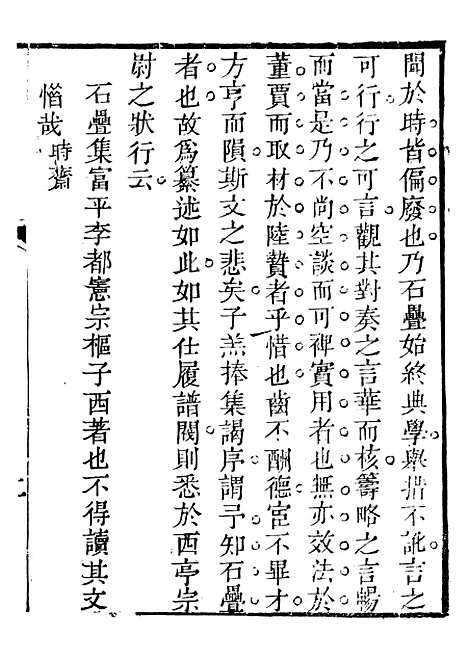 聞於時皆偏廢也乃石疊始終典學舉措不訛言之
可行行之可言觀其對奏之言華而核籌略之言暢
而當是乃不尚空談而可裨實用者也無亦效法於
董賈而取材於陸贄者乎惜也齒不酬德宦不畢才
方亨而隕斯文之悲矣子羔捧集謁序謂予知石疊
者也故爲纂述如此如其仕履譜閥則悉於西亭宗
尉之狀行云
石疊集富平李都憲宗樞子西著也不得讀其文
惜哉時齋